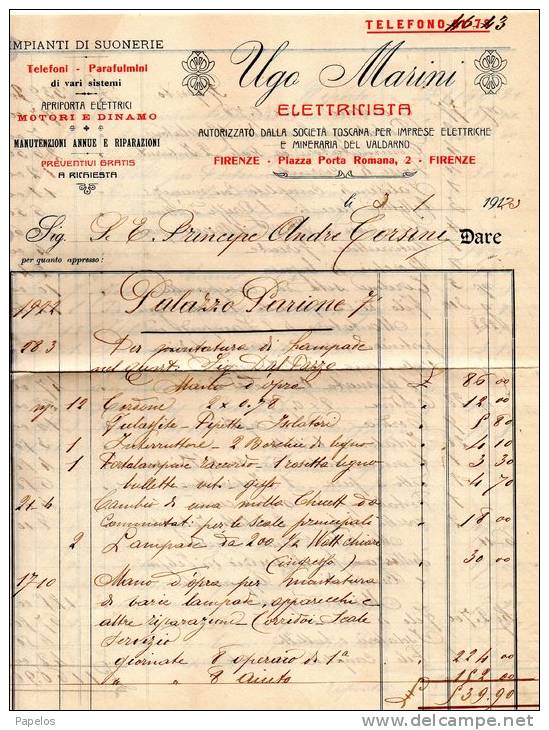 TELEFONO
IMPIANTI DI SUONERIE
Telefoni - Parafulmini
di vari sistemi
APRIPORTA ELETTRICI
MOTORI E DINAMO
MANUTENZIONI ANNUE E RIPARAZIONI
PREVENTIVI GRATIS
A RICHIESTA
Ugo Marini
ELETTRICISTA
AUTORIZZATO DALLA SOCIETÀ TOSCANA PER IMPRESE ELETTRICHE
E MINERARIA DEL VALDARNO
FIRENZE - Piazza Porta Romana, 2 - FIRENZE
li 3/1 1923
Sig. S. E. Principe Andre Corsini Dare
per quanto appresso:
1922 Palazzo Parione 7
28 3 Per montatura di lampade
nel quart. Sig. Dal Pozzo
Mano d'opra £ 86 00
12 Cordone 2 x 0.78 " 12 00
Isolatori " 5 80
1 Interruttore - 2 legno " 4 10
1 Portalampade raccordo - 1 rosetta legno " 3 30
bullette - viti gesso " 4 70
21 4 Cambio di una molla
Commutat. per le Scale principali " 18 00
2 Lampade da 200 1/2 Watt chiare
(ingresso) " 30 00
17 10 Mano d'opra per montatura
di varie lampade, apparecchi e
altre riparazioni Corridoi Scale
Servizio
giornate 8 operaio di 1ª " 224 00
" " 8 aiuto " 152 00
£ 539.90
Papelos
www.delcampe.net